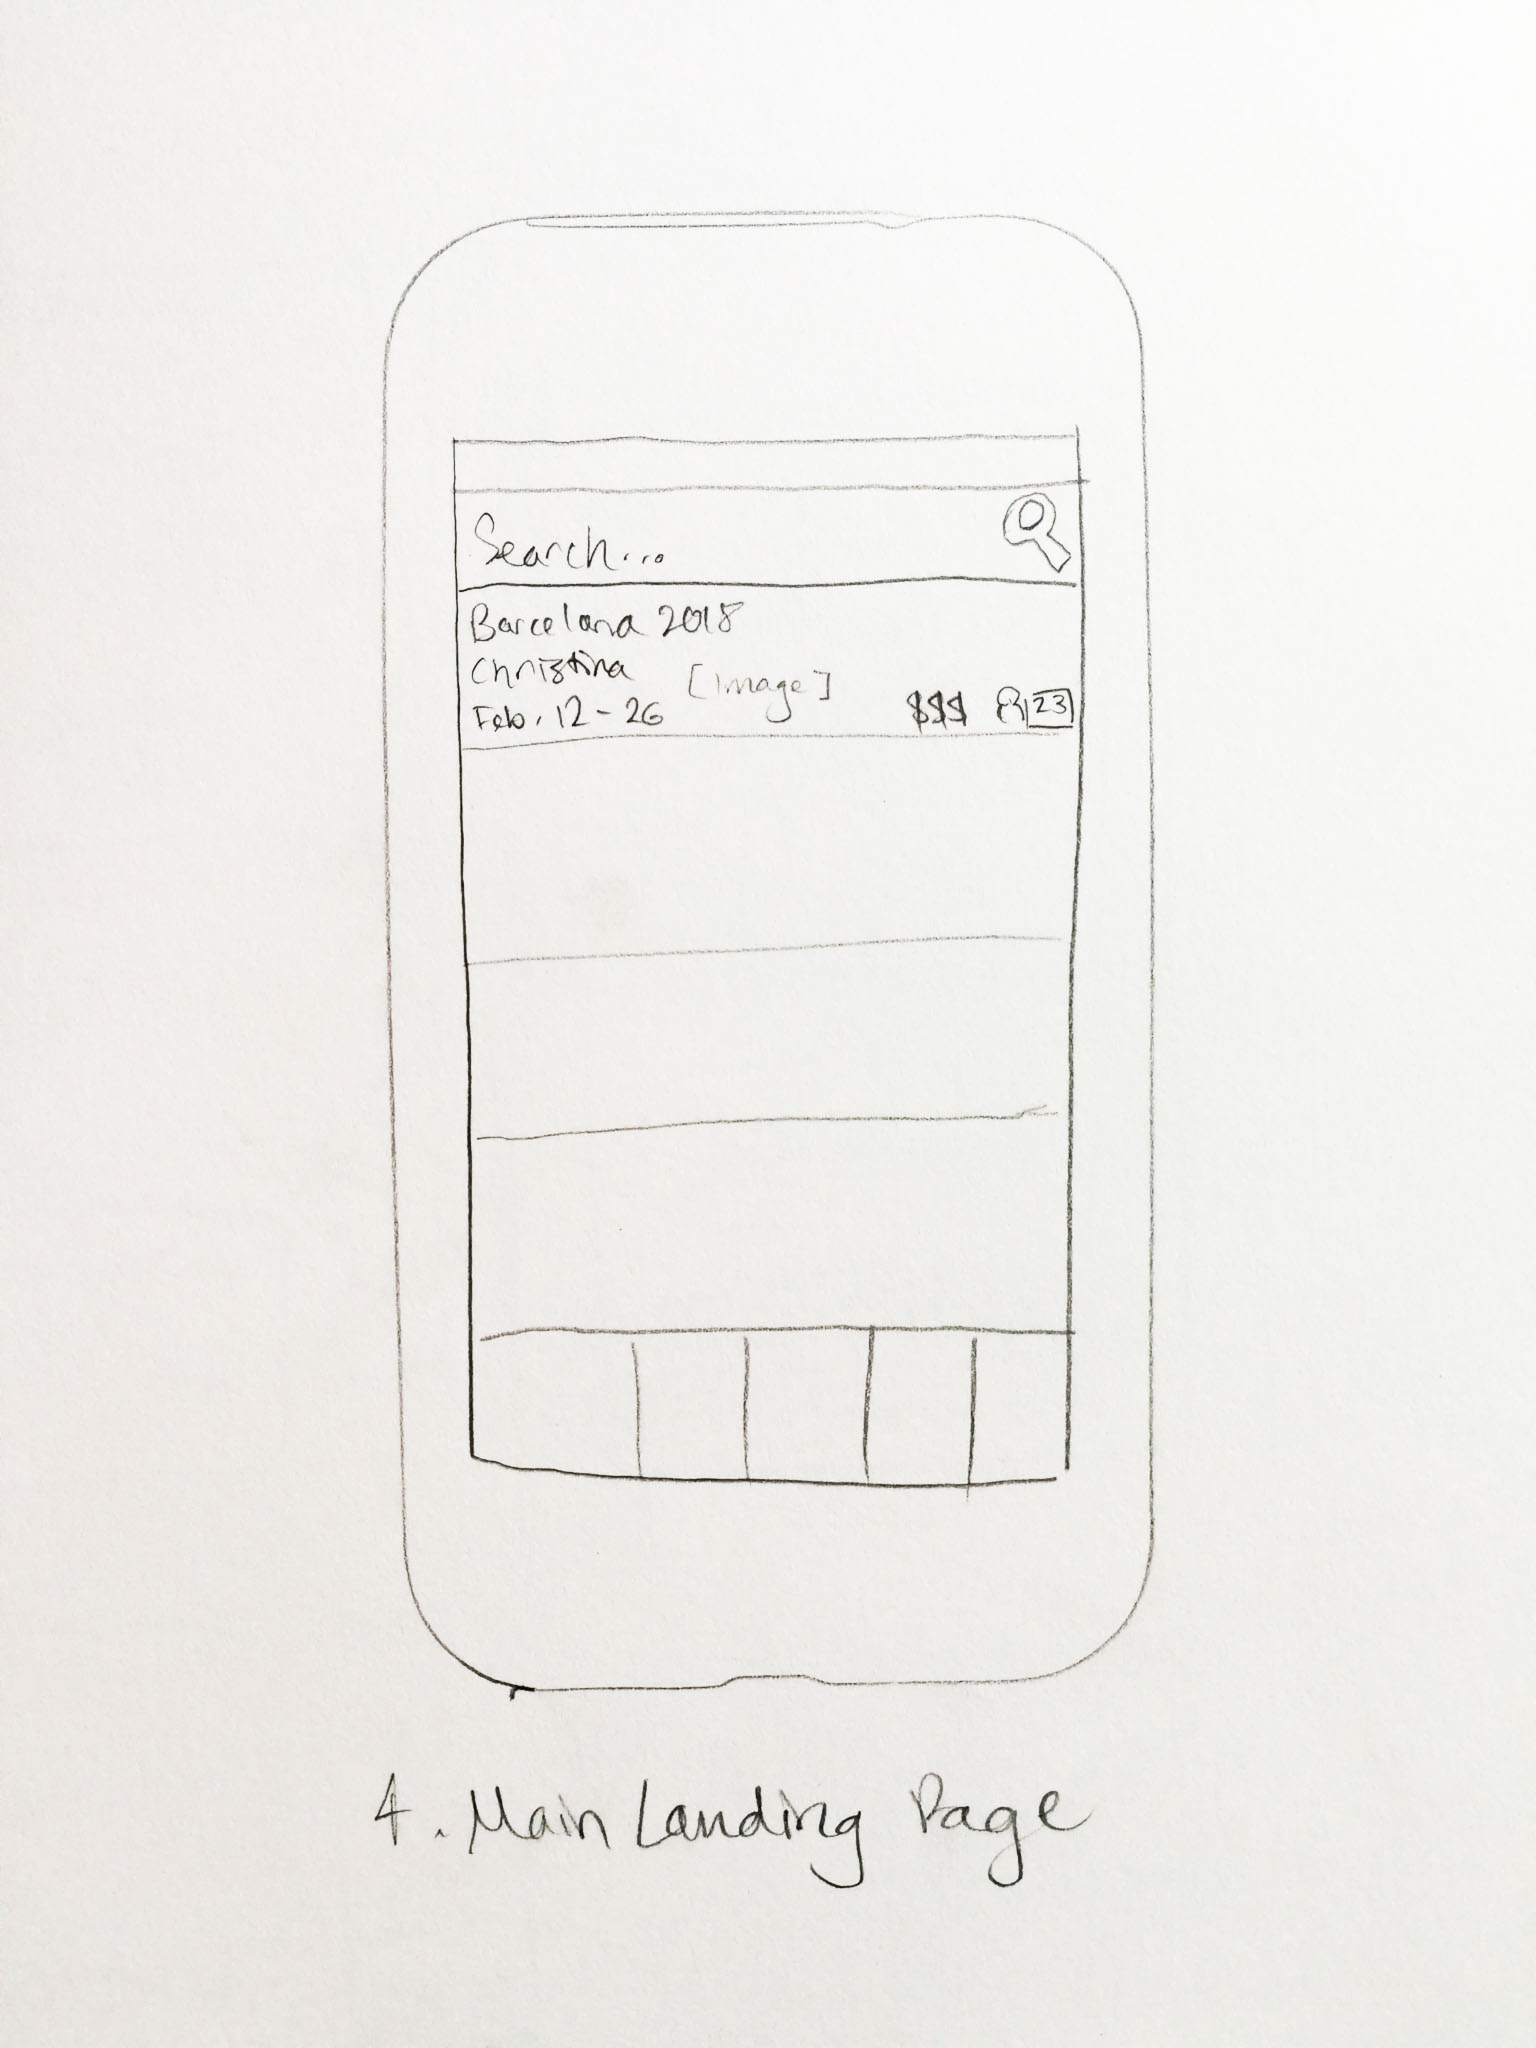 Search...
Barcelona 2018
Christina
[image]
Feb. 12 - 26
$$$
23
4. Main Landing Page